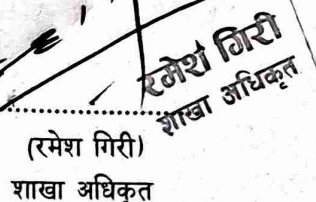 रमेश गिरी
शाखा अधिकृत
(रमेश गिरी)
शाखा अधिकृत